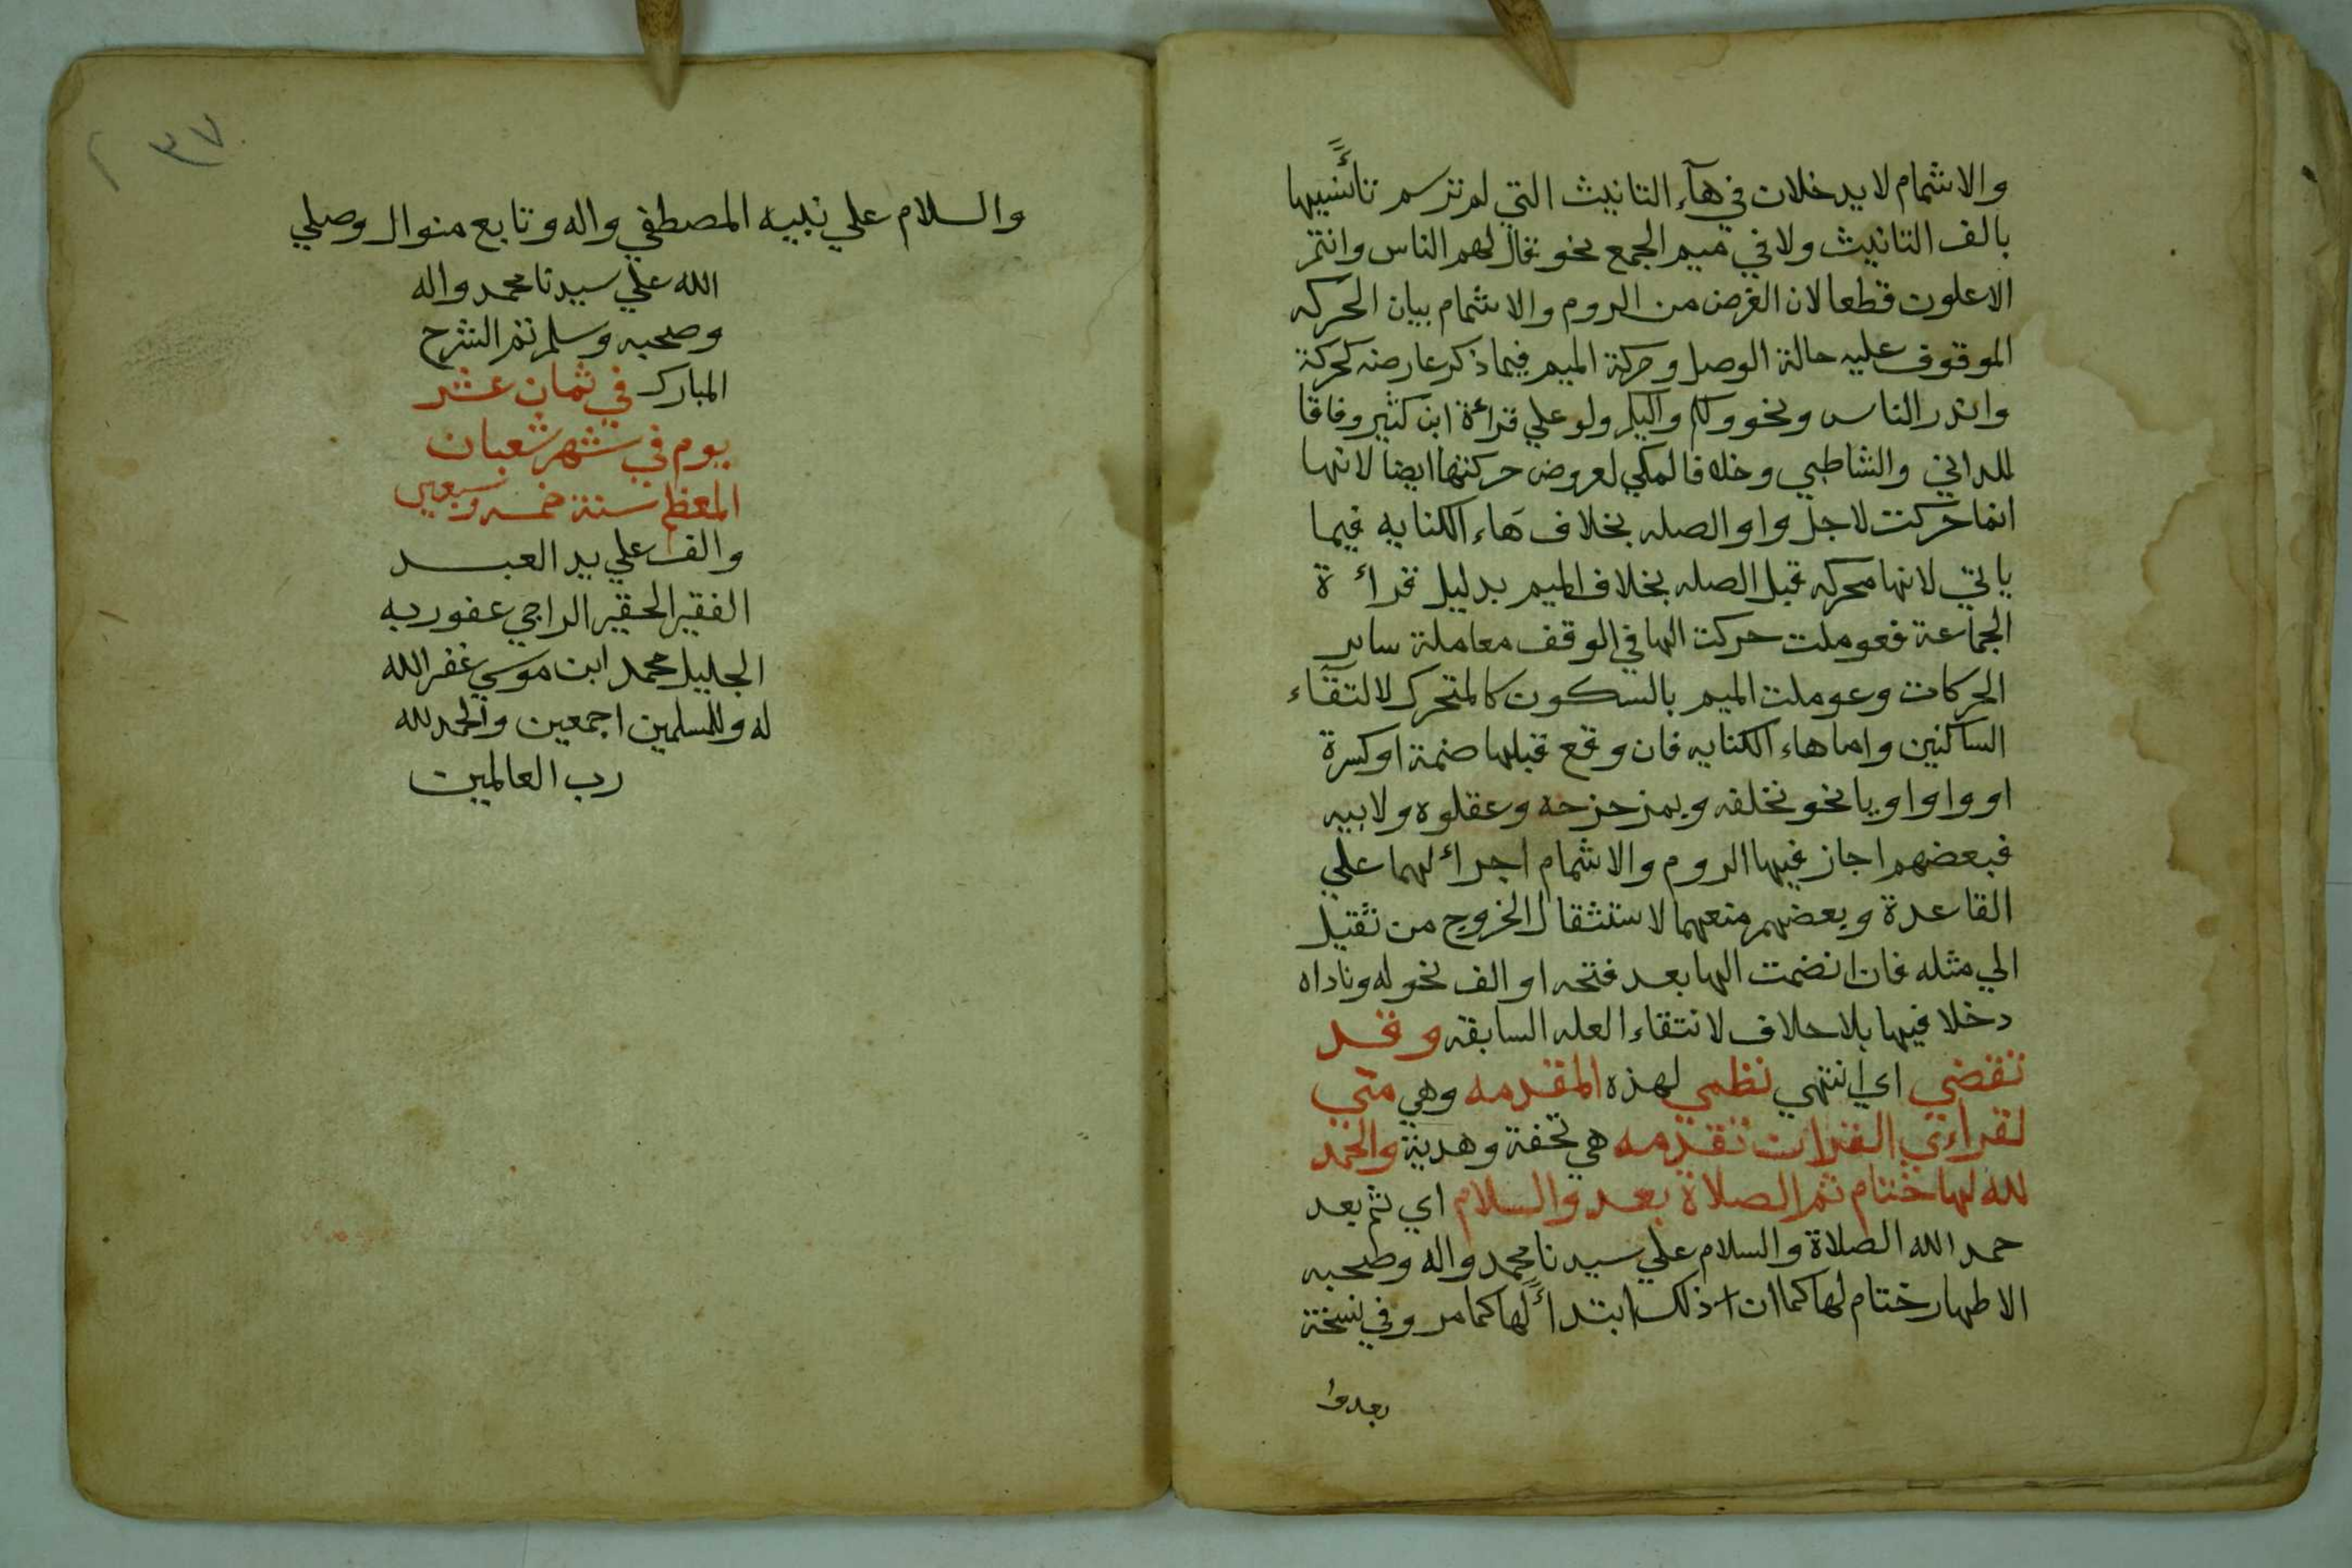 والاشمام لا يدخلان في هآء التانيث التي لم ترسم تأنيثها
بالف التانيث ولا في ميم الجمع نحو نقال لهم الناس وانتم
الاعلون قطعا لان الغرض من الروم والاشمام بيان الحركه
الموقوف عليه حالة الوصل وحركة الميم فيما ذكر عارضه كحركة
وانذر الناس ونحو وكم واليكم ولو علي قرأة ابن كثير وفاقا
للداني والشاطبي وخلافا لمكي لعروض حركتها ايضا لانها
انما حركت لاجل واو الصله بخلاف هاء الكنايه فيما
ياتي لانها محركه قبل الصله بخلاف الميم بدليل قرأة
الجماعة فعوملت حركت الها في الوقف معاملة ساير
الحركات وعوملت الميم بالسكون كالمتحرك لالتقاء
الساكنين واما هاء الكنايه فان وقع قبلها ضمة او كسرة
او واو او يا نحو نخلفه وبمزحزحه وعقلوه ولابيه
فبعضهم اجاز فيها الروم والاشمام اجراأ لهما علي
القاعدة وبعضهم منعهما لاستثقال الخروج من ثقيل
الي مثله فان انضمت الها بعد فتحه او الف نحو له وناداه
دخلا فيها بلا حلاف لانتقاء العله السابقه وقد
تقضي اي انتهي نظمي لهذه المقدمه وهي مني
لقراءي القران تقدمه هي تحفة وهدية والحمد
لله لها ختام ثم الصلاة بعد والسلام اي ثم بعد
حمد الله الصلاة والسلام علي سيدنا محمد واله وصحبه
الاطهار ختام لها كما ان ذلك ابتدأ لها كما مر وفي نسخة
بعد وا
٣٧
والسلام علي نبيه المصطفي واله وتابع منوال وصلي
الله علي سيدنا محمد واله
وصحبه وسلم تم الشرح
المبارك في ثمان عشر
يوم في شهر شعبان
المعظم سنة خمسه وسبعين
والف علي يد العبد
الفقير الحقير الراجي عفو ربه
الجليل محمد ابن موسي غفر الله
له وللمسلمين اجمعين والحمد لله
رب العالمين